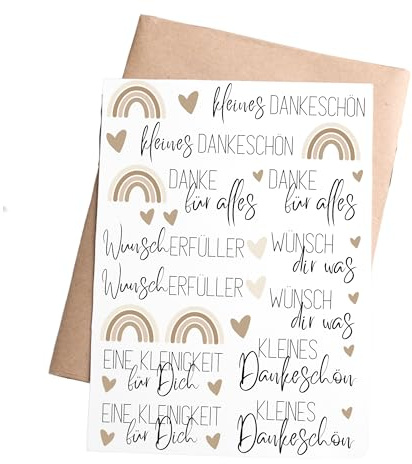 kleines DANKESCHÖN
kleines DANKESCHÖN
DANKE
für alles
DANKE
für alles
WunschERFÜLLER
WÜNSCH
dir was
WunschERFÜLLER
WÜNSCH
dir was
EINE KLEINIGKEIT
für Dich
KLEINES
Dankeschön
EINE KLEINIGKEIT
für Dich
KLEINES
Dankeschön